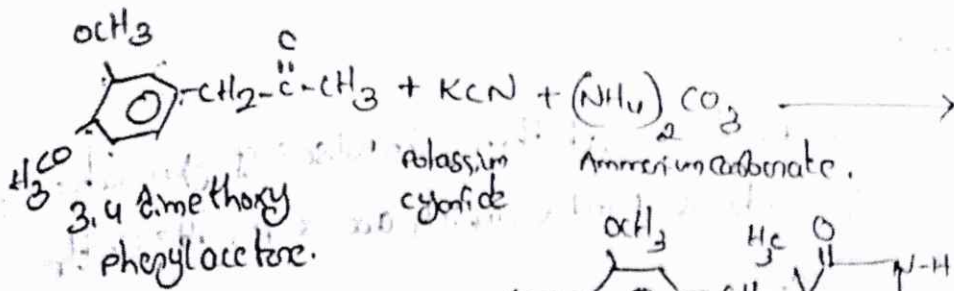 OCH3
C
-CH2-C-CH3 + KCN + (NH4)2 CO3
H3CO
3,4 dimethoxy
phenylacetone.
Potassium
cyanide
Ammonium carbonate.
OCH3
H3C O
CH N-H